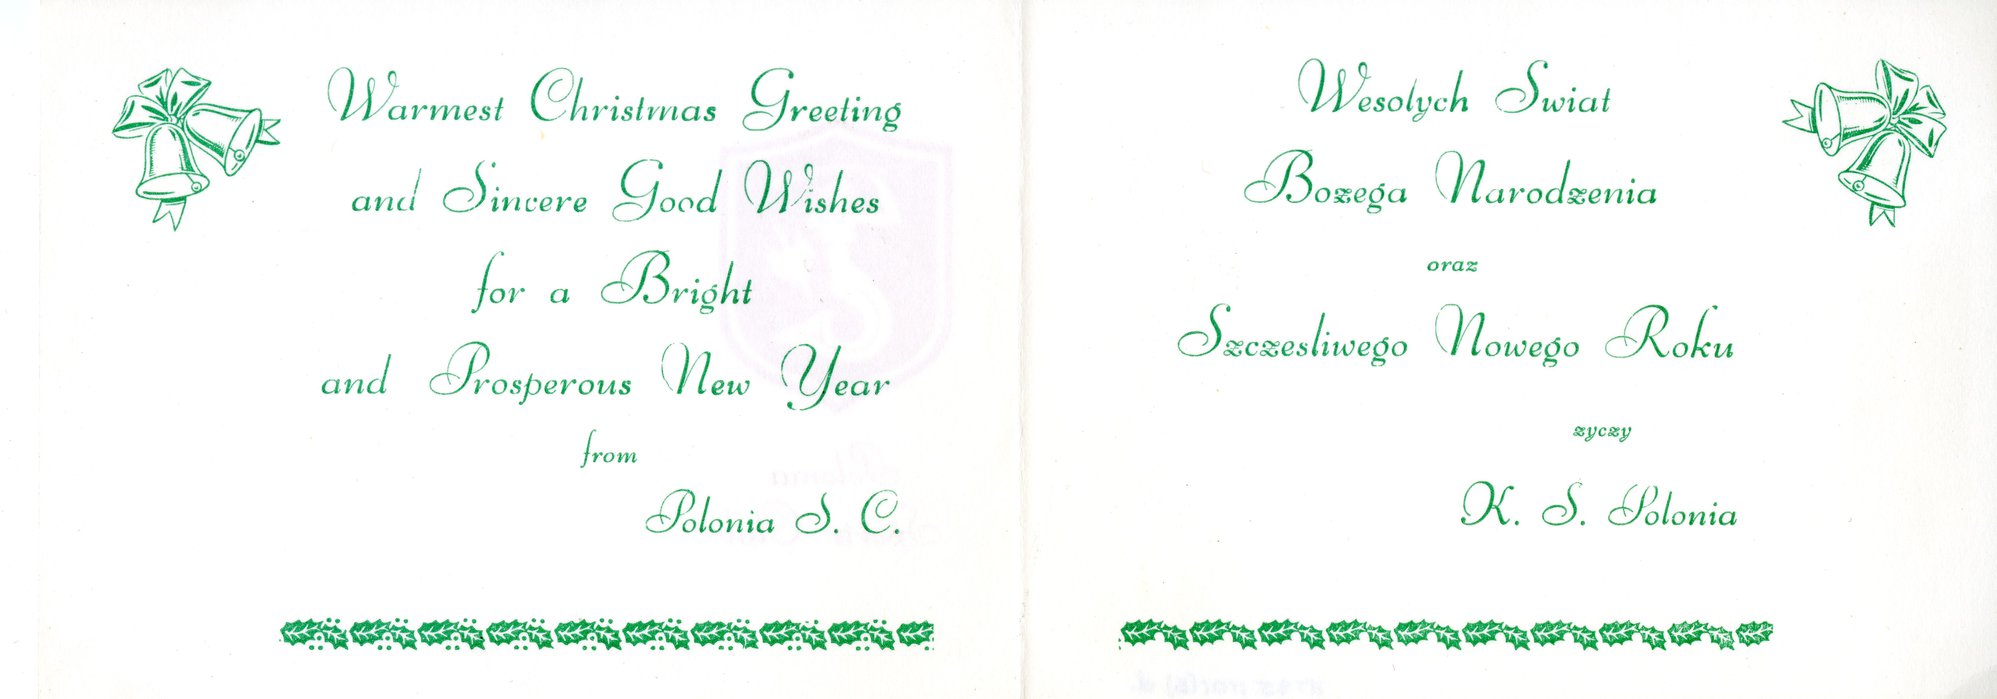 Warmest Christmas Greeting
and Sincere Good Wishes
for a Bright
and Prosperous New Year
from
Polonia S. C.
Wesolych Swiat
Bozega Narodzenia
oraz
Szczesliwego Nowego Roku
zyczy
K. S. Polonia